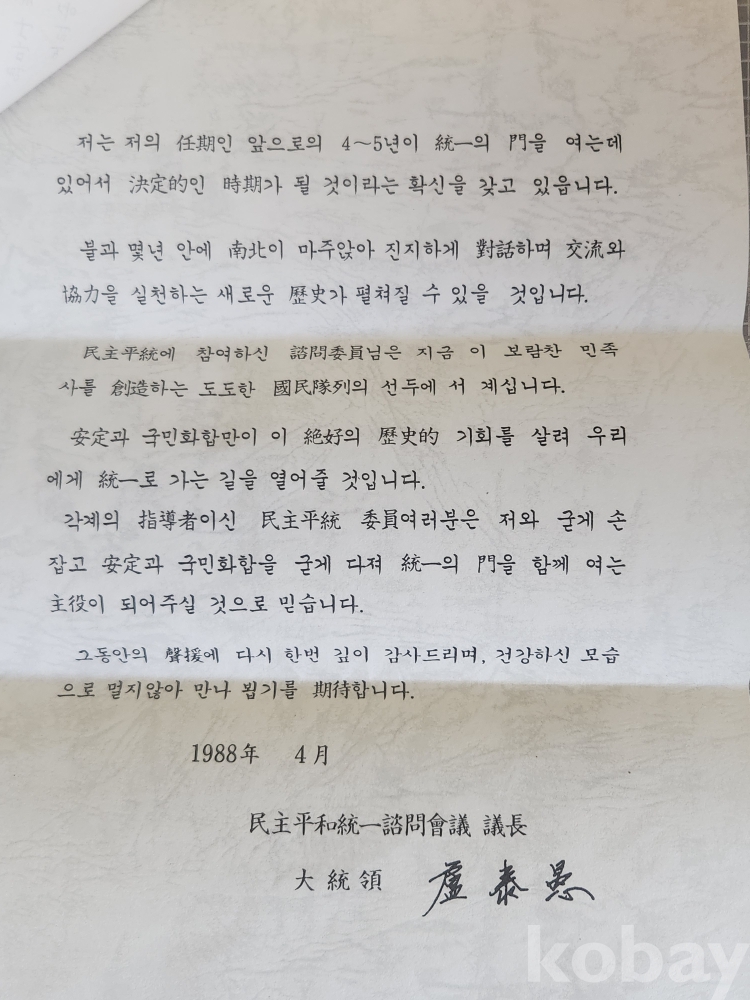 저는 저의 任期인 앞으로의 4~5년이 統一의 門을 여는데
있어서 決定的인 時期가 될 것이라는 확신을 갖고 있읍니다.
불과 몇년 안에 南北이 마주앉아 진지하게 對話하며 交流와
協力을 실천하는 새로운 歷史가 펼쳐질 수 있을 것입니다.
民主平統에 참여하신 諮問委員님은 지금 이 보람찬 민족
사를 創造하는 도도한 國民隊列의 선두에 서 계십니다.
安定과 국민화합만이 이 絶好의 歷史的 기회를 살려 우리
에게 統一로 가는 길을 열어줄 것입니다.
각계의 指導者이신 民主平統 委員여러분은 저와 굳게 손
잡고 安定과 국민화합을 굳게 다져 統一의 門을 함께 여는
主役이 되어주실 것으로 믿습니다.
그동안의 聲援에 다시 한번 깊이 감사드리며, 건강하신 모습
으로 멀지않아 만나 뵙기를 期待합니다.
1988年 4月
民主平和統一諮問會議 議長
大統領 盧泰愚
kobay